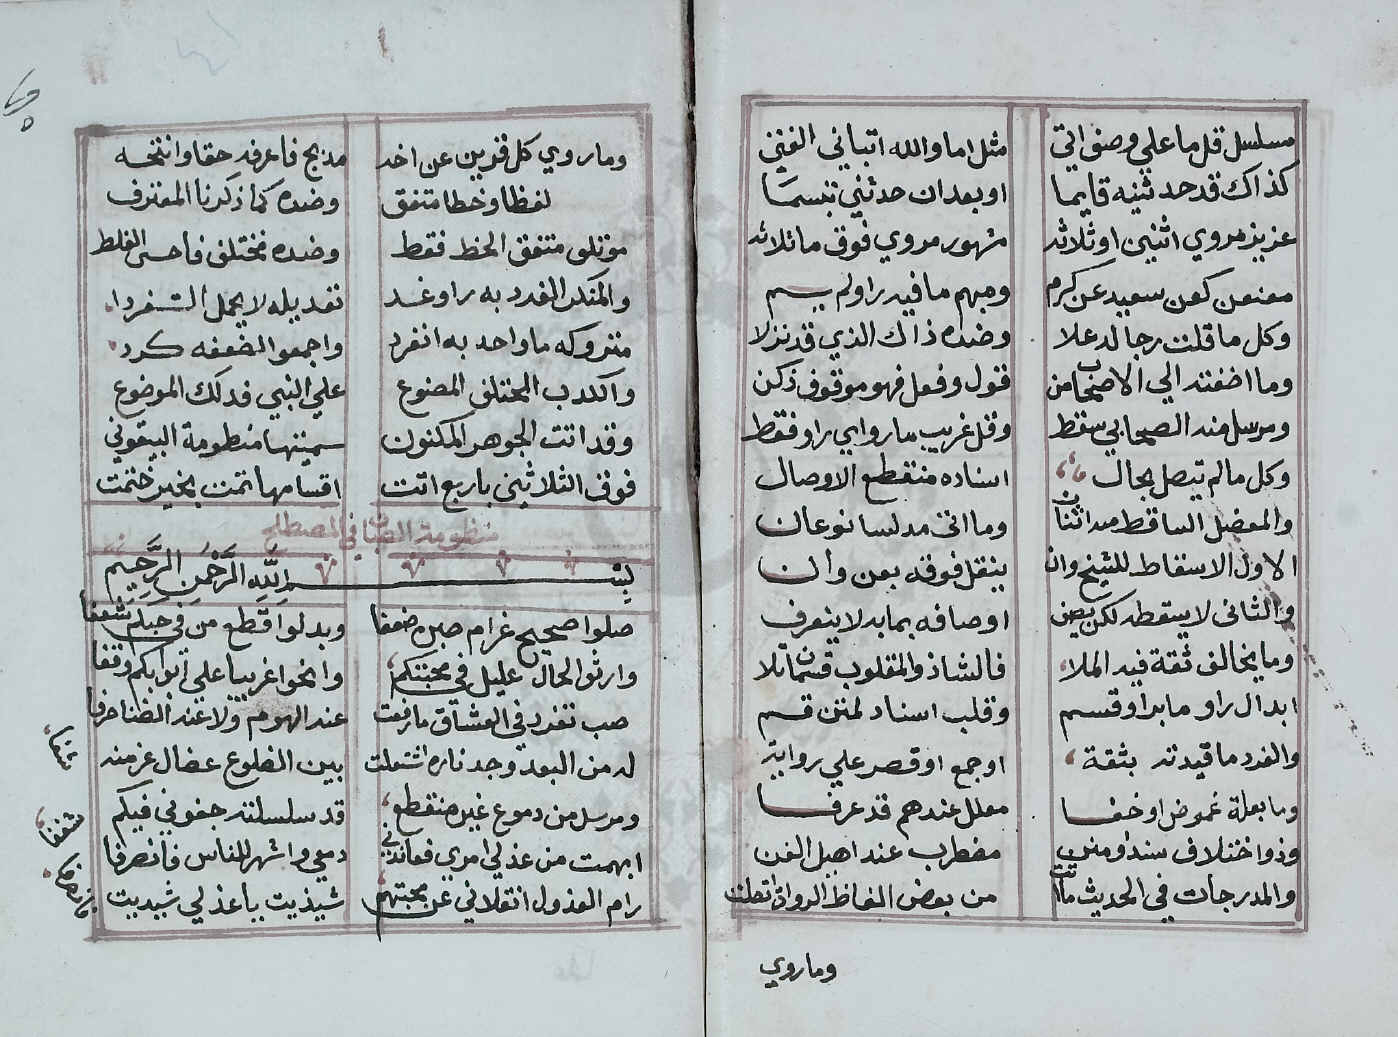 مسلسل قل ما علي وصف اتي مثل اما والله انباني الفتي
كذاك قد حدثنيه قايما او بعد ان حدثني تبسما
عزيز مروي اثنين او ثلاثه مشهور مروي فوق ما ثلاثه
معنعن كعن سعيد عن كرم ومبهم ما فيه راو لم يسم
وكل ما قلت رجاله علا وضده ذاك الذي قد نزلا
وما اضفته الي الاصحاب من قول وفعل فهو موقوف زكن
ومرسل منه الصحابي سقط وقل غريب ما روايي راو فقط
وكل ما لم يتصل بحال اسناده منقطع الاوصال
والمعضل الساقط منه اثنان وما اتى مدلسا نوعان
الاول الاسقاط للشيخ وان ينقل فوقه بعن وان
والثاني لا يسقطه لكن يصف اوصافه بما به لا ينعرف
وما يخالف ثقة فيه الملا فالشاذ والمقلوب قسمان تلا
ابدال راو ما براو قسم وقلب اسناد لمتن قسم
والفرد ما قيدته بثقة او جمع او قصر علي رواية
وما بعلة غموض او خفا معلل عندهم قد عرفا
وذو اختلاف سند او متن مضطرب عند اهيل الفن
والمدرجات في الحديث ما اتت من بعض الفاظ الرواة اتصلت
وما روي
وما روي كل قرين عن اخه مدبج فاعرفه حقا وانتخه
لفظا وخطا متفق وضده كما ذكرنا المفترق
موتلف متفق الخط فقط وضده مختلف فاخش الغلط
والمنكر الفرد به راو غد تعديله لا يحمل التفردا
متروكه ما واحد به انفرد واجمعوا لضعفه كرد
والكدب المختلق المصنوع علي النبي فدلك الموضوع
وقد اتت الجوهر المكنون سميتها منظومة البيقوني
فوق الثلاثين باربع اتت اقسامها تمت بخير ختمت
منظومة الصبان في المصطلح
بِسْمِ اللَّهِ الرَّحْمَنِ الرَّحِيمِ
صلوا صحيح غرام صبره ضعفا وبدلوا قطع من في حبكم شغفا
وارثوا لحال عليل في محبتكم وانحوا غريبا على ابوابكم وقفا
صب تفرد في العشاق مارفعت عند الهموم ولا عند الضنا حرفا
له من البعد وجد ناره اشتعلت بين الضلوع عضال عز منه
شفا
ومرسل من دموع غير منقطع قد سلسلته جفوني فيكم
شغفا
ابهمت من عذلي امري فعاندني دمعي واشهر للناس فانصرفا
رام العذول انقلابي عن محبتهم شبذيت يا عذلي شبديت
فانصرفا